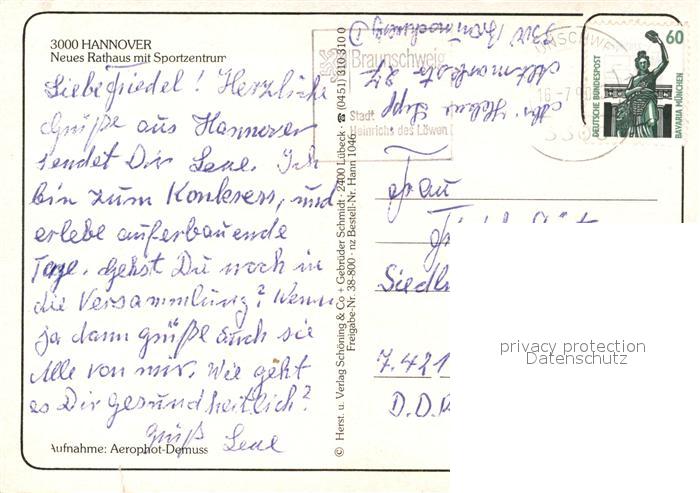 3000 HANNOVER
Neues Rathaus mit Sportzentrum
Liebe Friedel! Herzliche
Grüße aus Hannover
sendet Dir Lene. Ich
bin zum Konkress, und
erlebe auferbauende
Tage. Gehst Du noch in
die Versammlung? Wenn
ja dann grüße auch sie
Alle von mir. Wie geht
es Dir gesundheitlich?
Gruß Lene
Aufnahme: Aerophot-Demuss
© Herst. u. Verlag Schöning & Co + Gebrüder Schmidt · 2400 Lübeck · ☎ (0451) 310 310 0
Freigabe-Nr. 38-800 · nz Bestell-Nr. Hann 1046
Braunschweig
Stadt
Heinrichs des Löwen
Abs. Helene
33 Braunschweig
60
DEUTSCHE BUNDESPOST
BAVARIA MÜNCHEN
Frau
Siedl
7421
D.D.R
privacy protection
Datenschutz